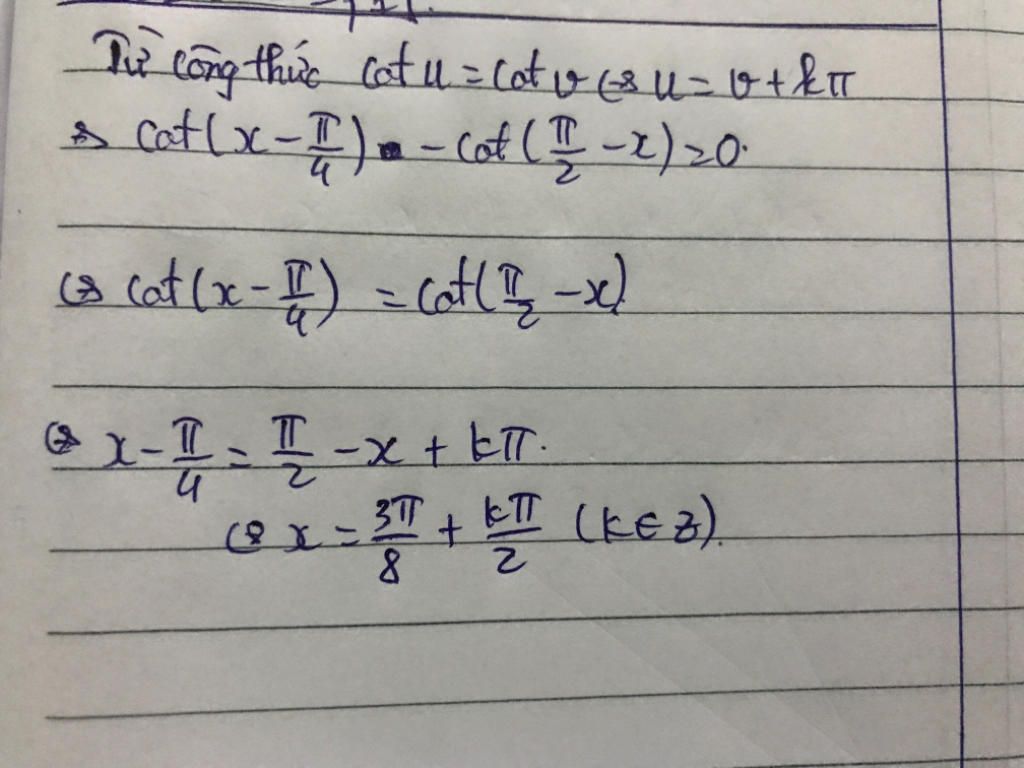 Từ công thức cot u = cot v ⇔ u = v + kπ
⇒ cot(x - π/4) - cot(π/2 - x) = 0.
⇔ cot(x - π/4) = cot(π/2 - x)
⇔ x - π/4 = π/2 - x + kπ.
⇔ x = 3π/8 + kπ/2 (k ∈ Z).